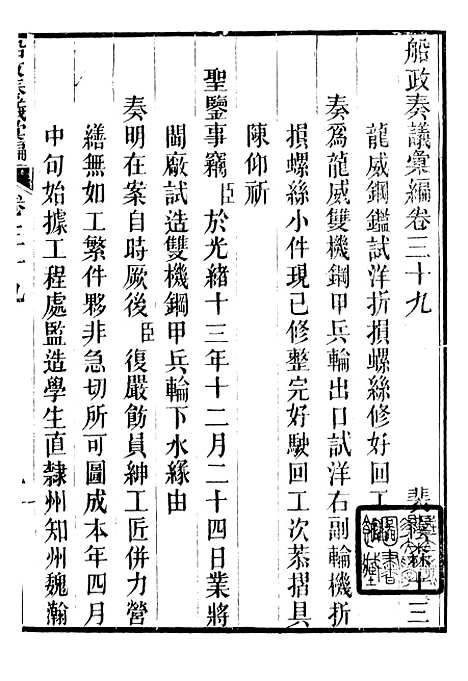 船政奏議彙編卷三十九 裴 十三
龍威鋼鑑試洋折損螺絲修好回工
奏爲龍威雙機鋼甲兵輪出口試洋右副輪機折
損螺絲小件現已修整完好駛回工次恭摺具
陳仰祈
聖鑒事竊臣於光緒十三年十二月二十四日業將
閩廠試造雙機鋼甲兵輪下水緣由
奏明在案自時厥後臣復嚴飭員紳工匠併力營
繕無如工繁件夥非急切所可圖成本年四月
中旬始據工程處監造學生直隸州知州魏瀚
船政奏議彙編 卷三十九